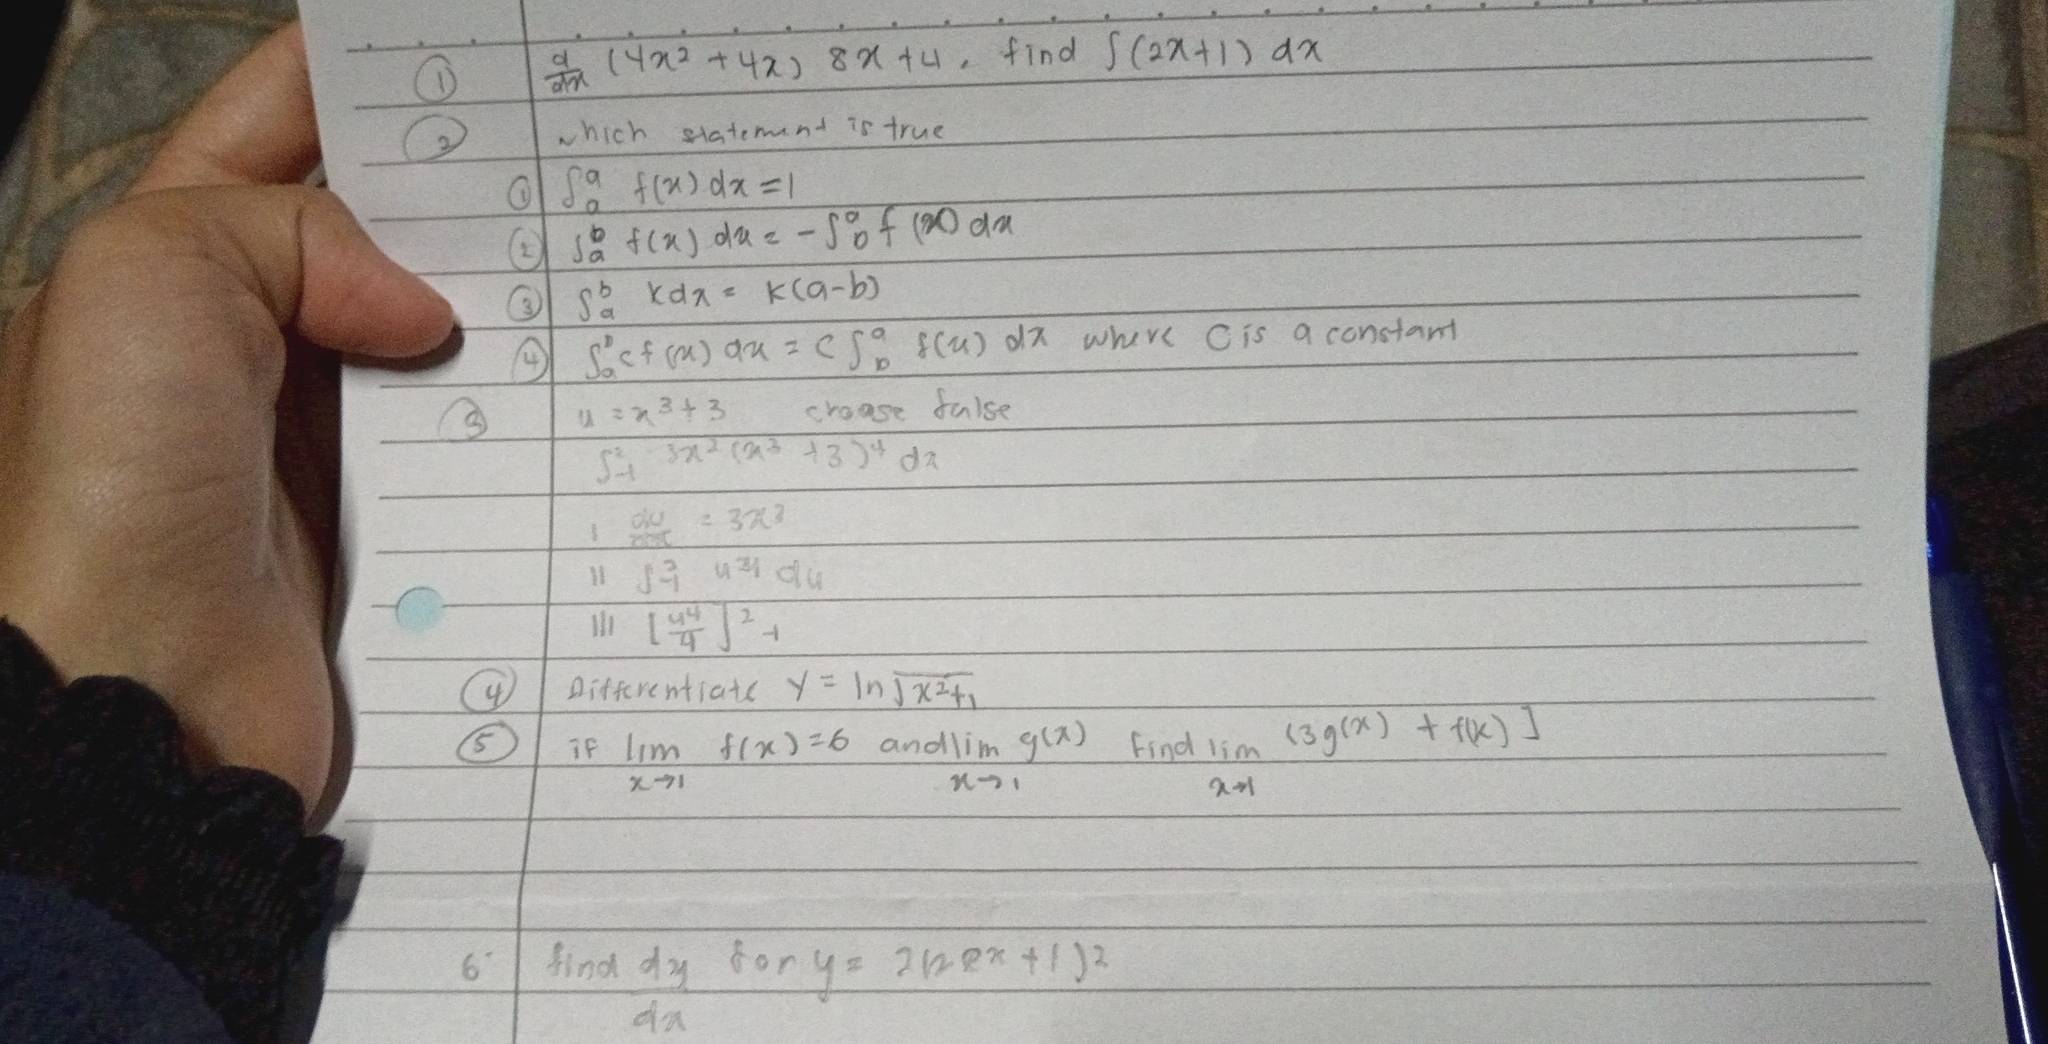 ① d/dx (4x² + 4x) 8x + 4. find ∫(2x+1) dx
② which statement is true
① ∫ₐᵃ f(x) dx = 1
② ∫ₐᵇ f(x) dx = -∫ᵇᵃ f(x) dx
③ ∫ₐᵇ kdx = k(a-b)
④ ∫ₐᵇ cf(x) dx = c ∫ᵇᵃ f(x) dx where C is a constant
③ u = x³ + 3 choose false
∫₋₁² 3x² (x³ + 3)⁴ dx
I du/dx =
II du
III [u⁴/4]²₋₁
④ Differentiate y = ln√x²+1
⑤ if lim f(x) = 6 and lim g(x) Find lim (3g(x) + f(x)]
x→1 x→1 x→1
6 find dy for y =
dx